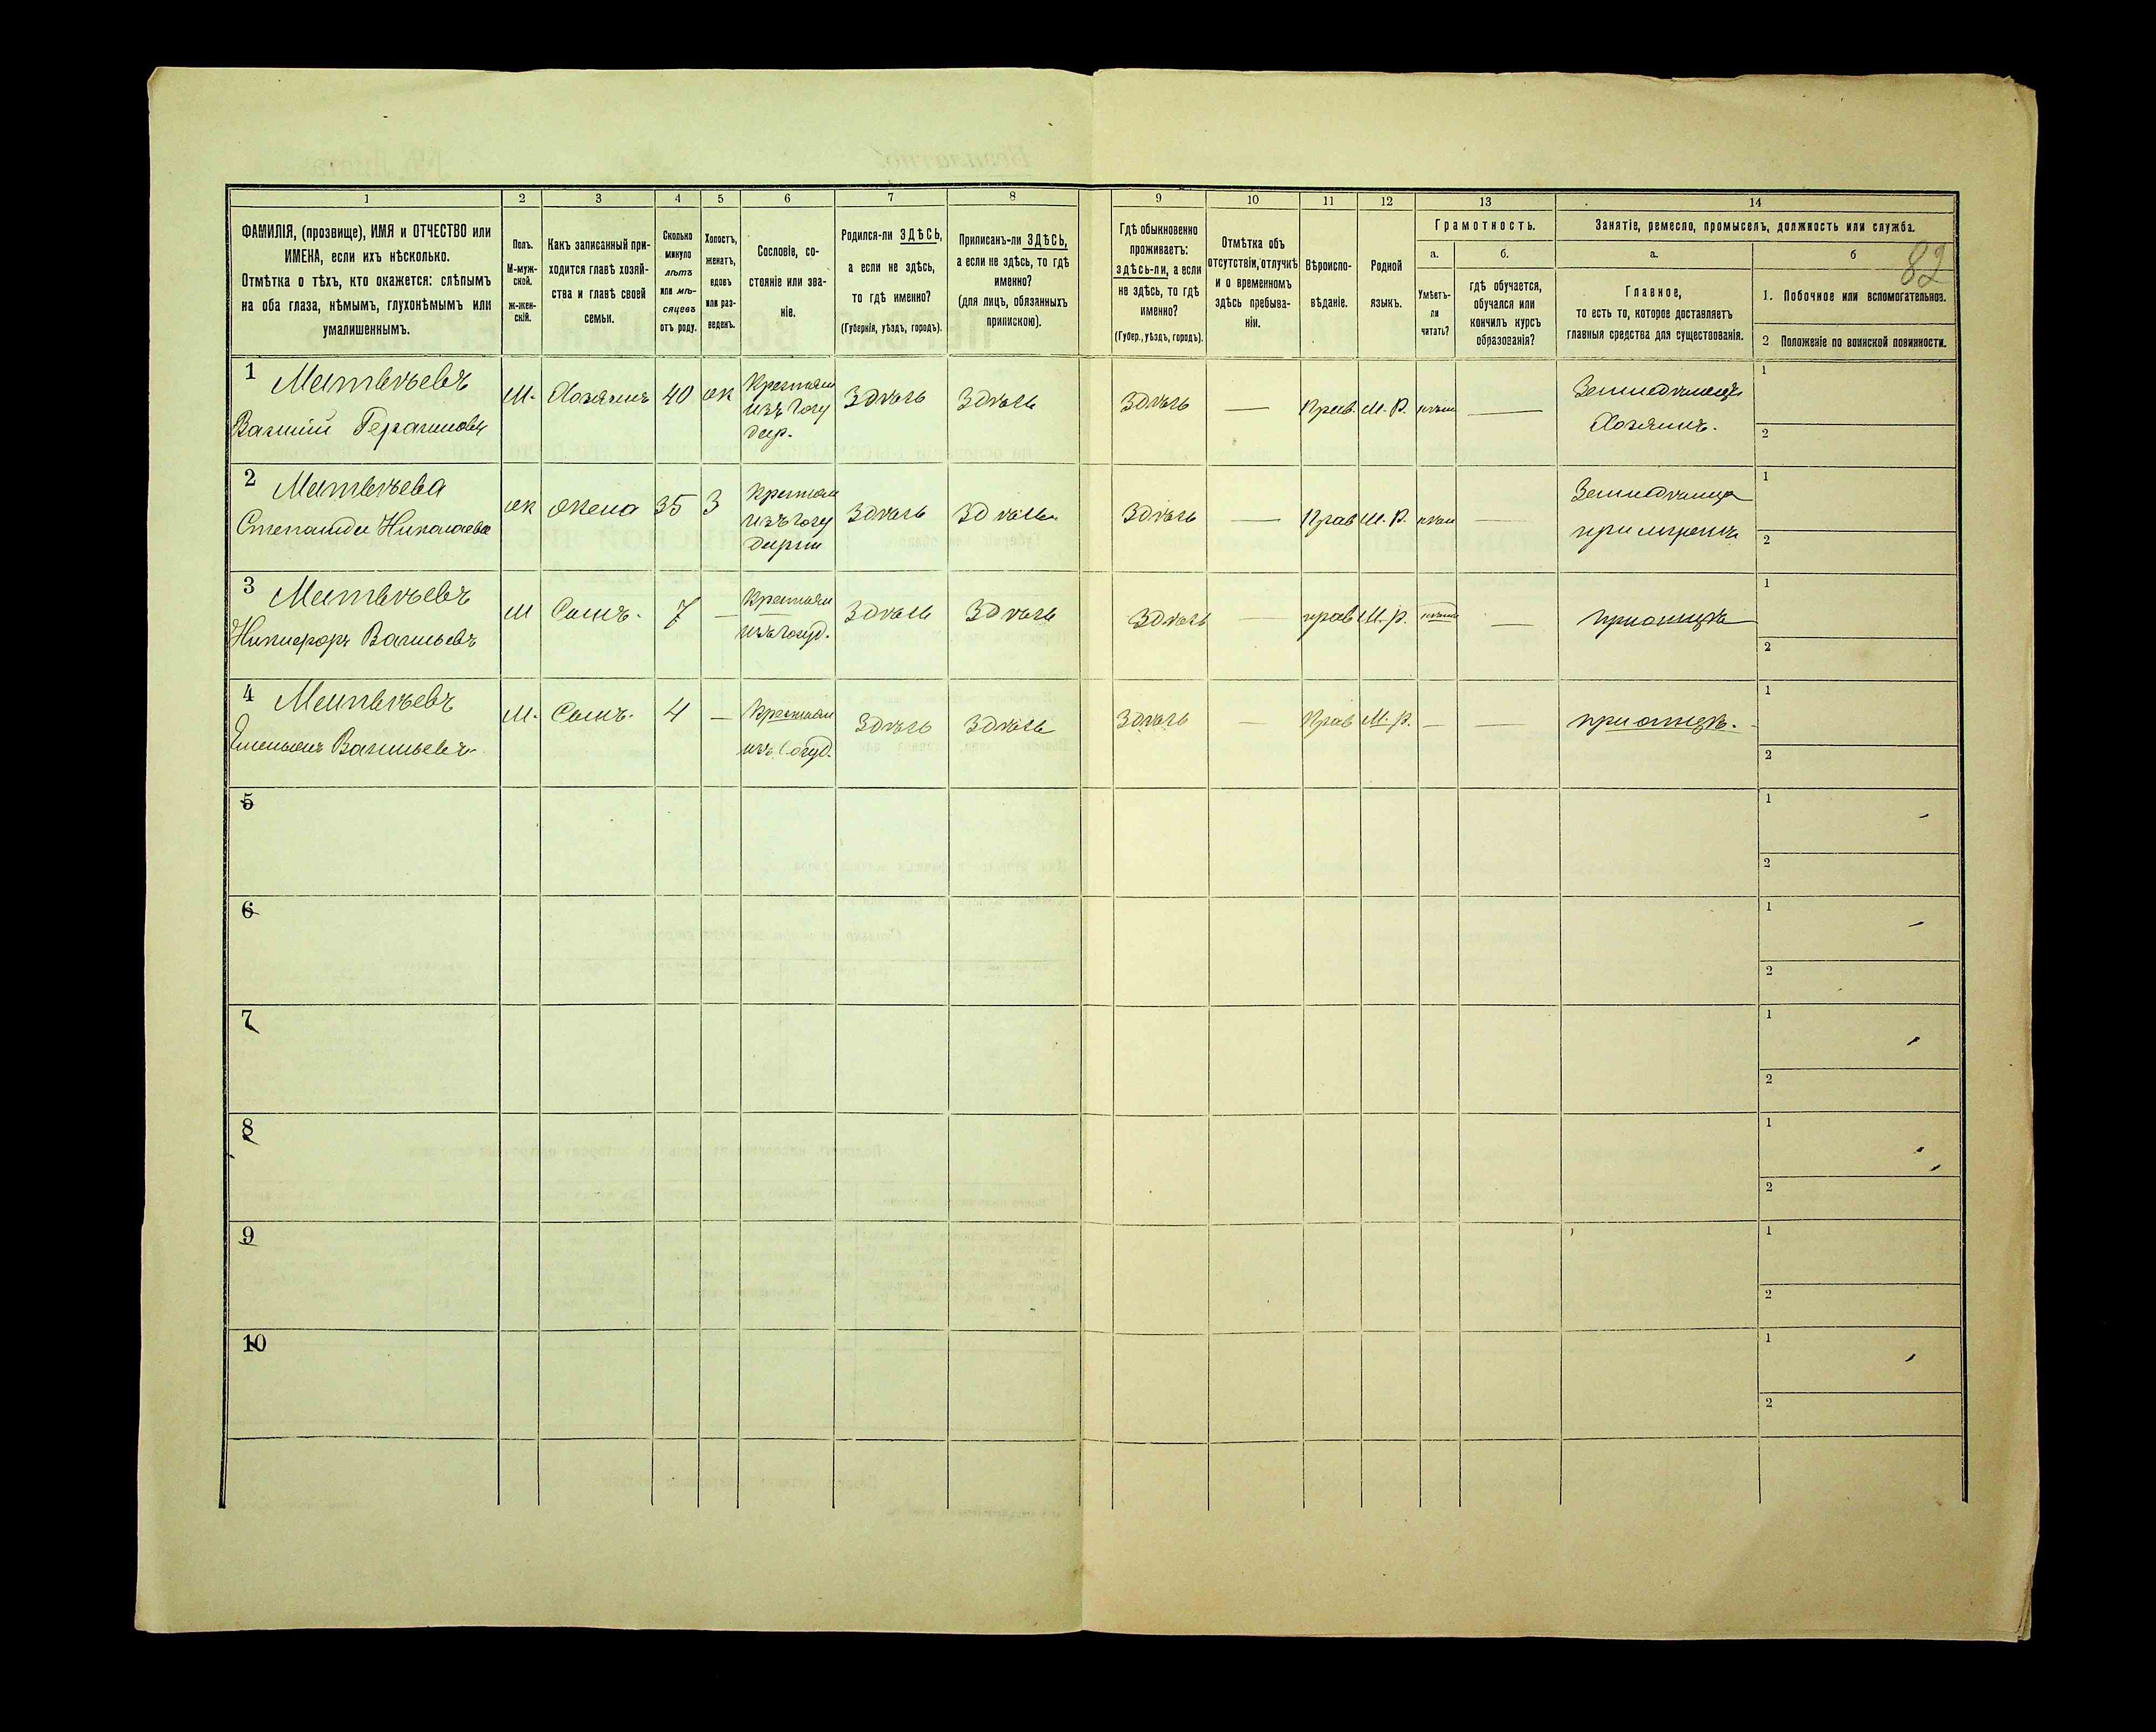 82
1
2
3
4
5
6
7
8
9
10
11
12
13
14
ФАМИЛІЯ, (прозвище), ИМЯ и ОТЧЕСТВО или
ИМЕНА, если ихъ нѣсколько.
Отмѣтка о тѣхъ, кто окажется: слѣпымъ
на оба глаза, нѣмымъ, глухонѣмымъ или
умалишеннымъ.
Полъ.
М-муж-
ской.
ж-жен-
скій.
Какъ записанный при-
ходится главѣ хозяй-
ства и главѣ своей
семьи.
Сколько
минуло
лѣтъ
или мѣ-
сяцевъ
отъ роду.
Холостъ,
женатъ,
вдовъ
или раз-
веденъ.
Сословіе, со-
стояніе или зва-
ніе.
Родился-ли ЗДѢСЬ,
а если не здѣсь,
то гдѣ именно?
(Губернія, уѣздъ, городъ).
Приписанъ-ли ЗДѢСЬ,
а если не здѣсь, то гдѣ
именно?
(для лицъ, обязанныхъ
припискою).
Гдѣ обыкновенно
проживаетъ:
здѣсь-ли, а если
не здѣсь, то гдѣ
именно?
(Губер., уѣздъ, городъ).
Отмѣтка объ
отсутствіи, отлучкѣ
и о временномъ
здѣсь пребыва-
ніи.
Вѣроиспо-
вѣданіе.
Родной
языкъ.
Грамотность.
а.
Умѣетъ-
ли
читать?
б.
гдѣ обучается,
обучался или
кончилъ курсъ
образованія?
Занятіе, ремесло, промыселъ, должность или служба.
а.
Главное,
то есть то, которое доставляетъ
главныя средства для существованія.
б
1. Побочное или вспомогательное.
2 Положеніе по воинской повинности.
1 Матвѣевъ
Василій Герасимовъ
М. Хозяинъ 40 ж
Крестьян
изъ Госу
дар.
Здѣсь Здѣсь Здѣсь — Прав. М. Р. нѣт —
Земледѣлецъ
Хозяинъ.
1
2
2 Матвѣева
Степанида Николаева
ж жена 35 З
Крестьян
изъ госу
дарств
Здѣсь Здѣсь Здѣсь — Прав М. Р. нѣт —
1
2
3 Матвѣевъ
Никифоръ Васильевъ
М Сынъ. 7 —
Крестьян
изъ Госуд.
Здѣсь Здѣсь Здѣсь — прав М. р. нѣт —
при отцѣ
1
2
4 Матвѣевъ
Емельянъ Васильевъ
М. Сынъ. 4 —
Крестьян
изъ Госуд.
Здѣсь Здѣсь Здѣсь — Прав М. р. — —
при отцѣ.
1
2
5
1
2
6
1
2
7
1
2
8
1
2
9
1
2
10
1
2